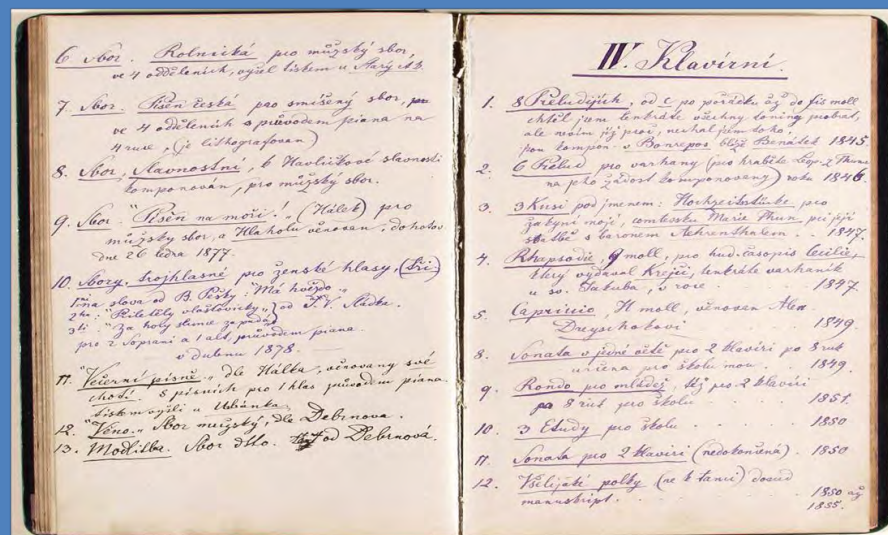 6. Sbor. Rolnická pro mužský sbor,
ve 4 odděleních, vyšel tiskem u Starý
7. Sbor. Píseň česká pro smíšený sbor,
ve 4 odděleních s průvodem piana na
4 ruce, (je lithografován)
8. Sbor, Slavnostní, k Havlíčkově slavnosti
komponován, pro mužský sbor.
9. Sbor "Píseň na moři!" (Hálek) pro
mužský sbor, a Hlaholu věnován, dohotov
dne 26 ledna 1877.
10. Sbory trojhlasné pro ženské hlasy, (Tři)
na slova od B. Pešky "Má hvězdo"
"Přiletěly vlaštovičky" od J. V. Sládka.
3tí "Za hory slunce zapadá"
pro 2 soprani a 1 alt, průvodem piana.
v dubnu 1878.
11. "Večerní písně" dle Hálka, věnovany své
choti 8 písních pro 1 hlas průvodem piana.
tiskem vyšli u Urbánka.
12. "Věno" Sbor mužský, dle Debrnova.
13. Modlitba. Sbor dtto. od Debrnová.
IV. Klavírní.
1. 8 Preludijích, od C po pořádku až do fis moll
chtěl jsem tenkráte všechny toniny probrat,
ale nevím již proč, nechal jsem toho,
jsou kompon. v Bonrepos blíž Benátek 1845.
2. 6 Prelud pro varhany (pro hraběte Leop. z Thunu
na jeho žádost komponovaný) roku 1846.
3. 3 Kusi pod jmenem: Hochzeitsstücke pro
žákyni moji, comtessku Marie Thun při její
svatbě s baronem Aehrenthalem. . . 1847.
4. Rhapsodie, G moll, pro hud. časopis Cecilie,
který vydával Krejčí, tenkráte varhaník
u sv. Jakuba, v roce . . . 1847.
5. Capriccio, H moll, věnován Alex.
Dreyschokovi . . . 1849.
8. Sonata v jedné větě pro 2 klavíri po 8 ruk
určena pro školu mou . . . 1849.
9. Rondo pro mládež, též pro 2 klavíri
po 8 ruk pro školu . . . 1851.
10. 3 Etudy pro školu . . . 1850
11. Sonata pro 2 klavíri (nedokončená) . 1850
12. Všelijaké polky (ne k tanci) dosud
manuskript . . . 1850 až
1855.